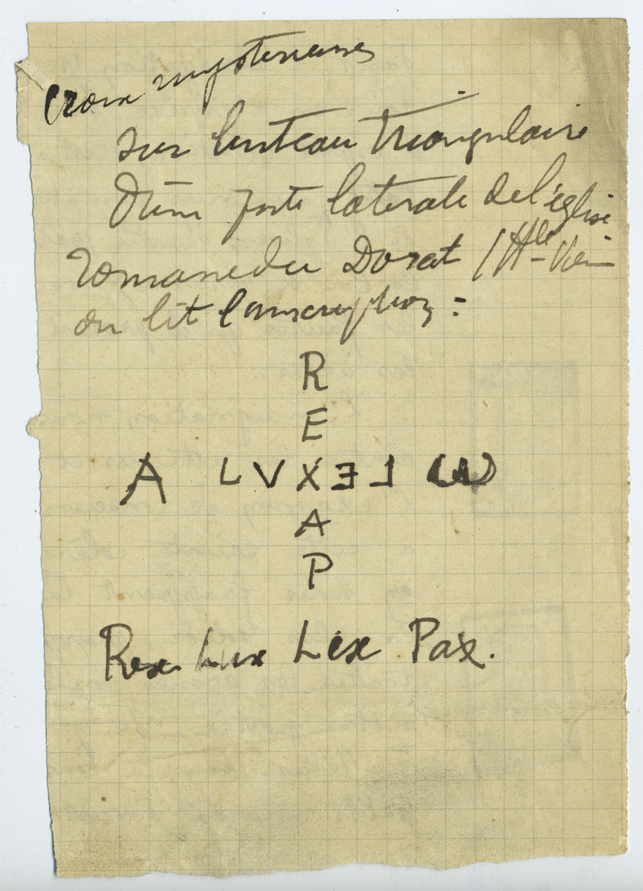 croix mysterieuses
sur linteau triangulaire
d'une porte laterale de l'église
romane du Dorat (Hte-Vien
on lit l'inscription :
R
E
A L V X E L ω
A
P
Rex Lux Lex Pax.